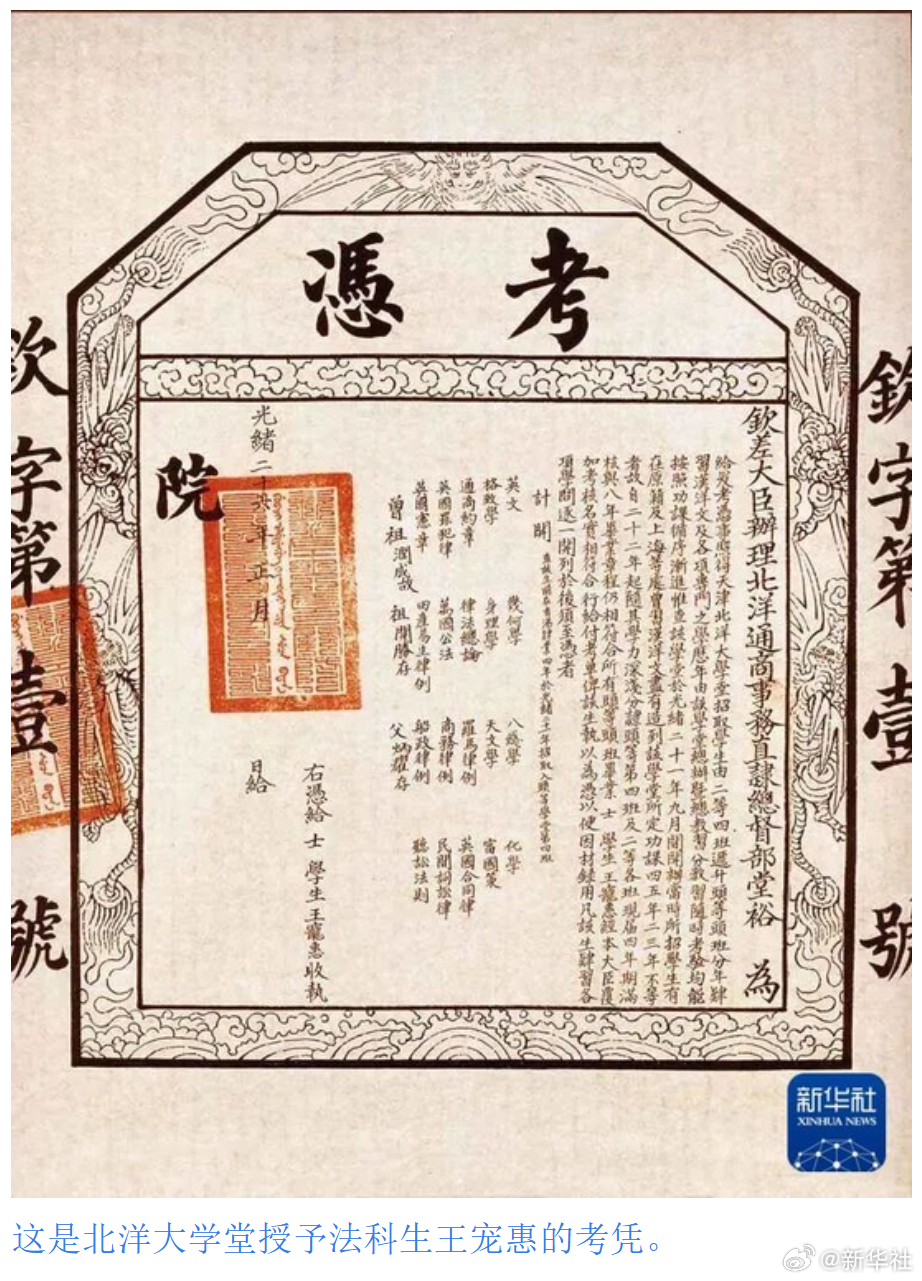 考憑
欽差大臣辦理北洋通商事務直隸總督部堂裕 為
給發考憑事照得天津北洋大學堂招取學生由二等四班遞升頭等頭班分年肄
習漢洋文及各項專門之學歷年由該學堂總辦暨總教習分教習隨時考驗均能
按照功課循序漸進惟查該學堂於光緒二十一年九月開辦當時所招學生有
在原籍及上海等處曾習漢洋文盡有造到該學堂所定功課四五年二三年不等
者故自二十二年起隨其學力深淺分隸頭等第四班及二等各班現屆四年期滿
核與八年畢業章程仍相符合所有頭等頭班畢業士學生王寵惠經本大臣覆
加考核名實相符合行給付考單俾該生執以為憑以便因材錄用凡該生肄習各
項學問逐一開列於後須至憑者
計開
英文 幾何學 八綫學 化學
格致學 身理學 天文學 富國策
通商約章 律法總論 羅馬律例 英國合同律
英國罪犯律 萬國公法 商務律例 民間詞訟律
英國憲章 田產易主律例 船政律例 聽訟法則
曾祖潤成歿 祖開勝存 父炳耀存
右憑給 士 學生王寵惠收執
光緒二十六年正月 日給
院
欽字第壹號
欽字第壹號
新华社
XINHUA NEWS
这是北洋大学堂授予法科生王宠惠的考凭。
@新华社